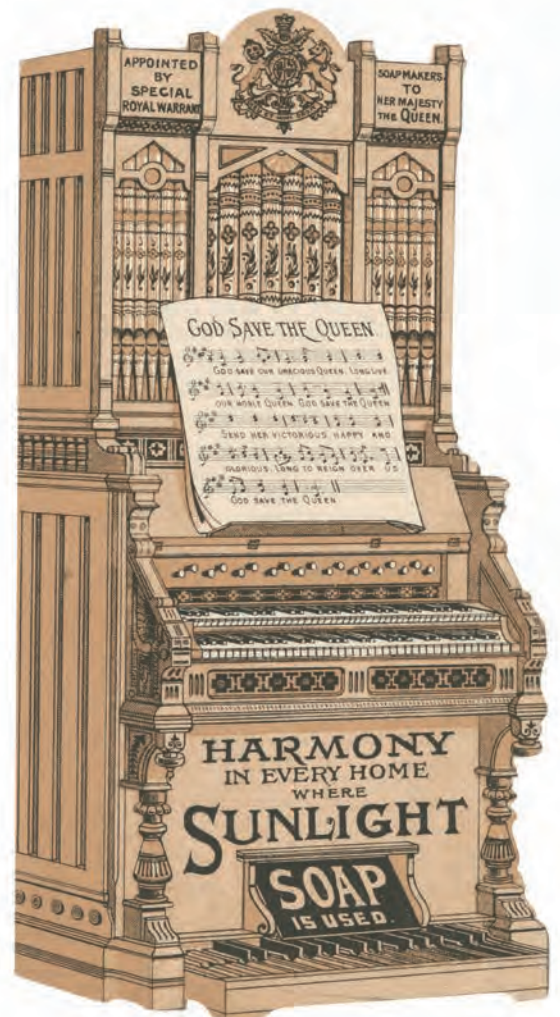 APPOINTED
BY
SPECIAL
ROYAL WARRANT
SOAP MAKERS
TO
HER MAJESTY
THE QUEEN.
GOD SAVE THE QUEEN
GOD SAVE OUR GRACIOUS QUEEN. LONG LIVE
OUR NOBLE QUEEN. GOD SAVE THE QUEEN
SEND HER VICTORIOUS HAPPY AND
GLORIOUS. LONG TO REIGN OVER US
GOD SAVE THE QUEEN
HARMONY
IN EVERY HOME
WHERE
SUNLIGHT
SOAP
IS USED.